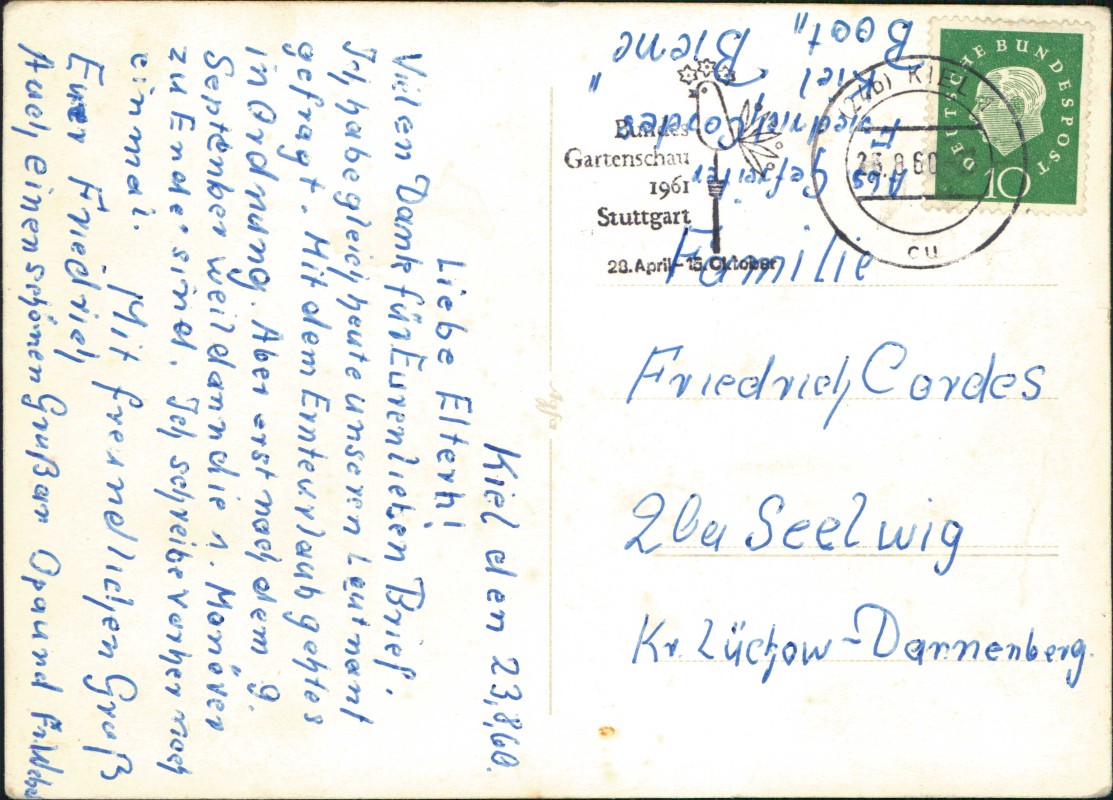 Kiel den 23,8,60.
Liebe Eltern!
Vielen Dank für Euren lieben Brief.
Ich habe gleich heute unseren Leutnant
gefragt. Mit dem Ernteurlaub geht es
in Ordnung. Aber erst nach dem 9.
September weil dann die 1. Manöver
zu Ende sind. Ich schreibe vorher noch
einmal.
Mit freundlichen Gruß
Euer Friedrich
Auch einen schönen Gruß an Opa und
Abs. Gefreiter
Friedrich Cordes
Kiel
Boot "Biene"
Bundes
Gartenschau
1961
Stuttgart
28. April - 15. Oktober
(24b) KIEL
23.8.60
cu
DEUTSCHE BUNDESPOST
10
Familie
Friedrich Cordes
20a Seelwig
Kr. Lüchow-Dannenberg.
Agfa